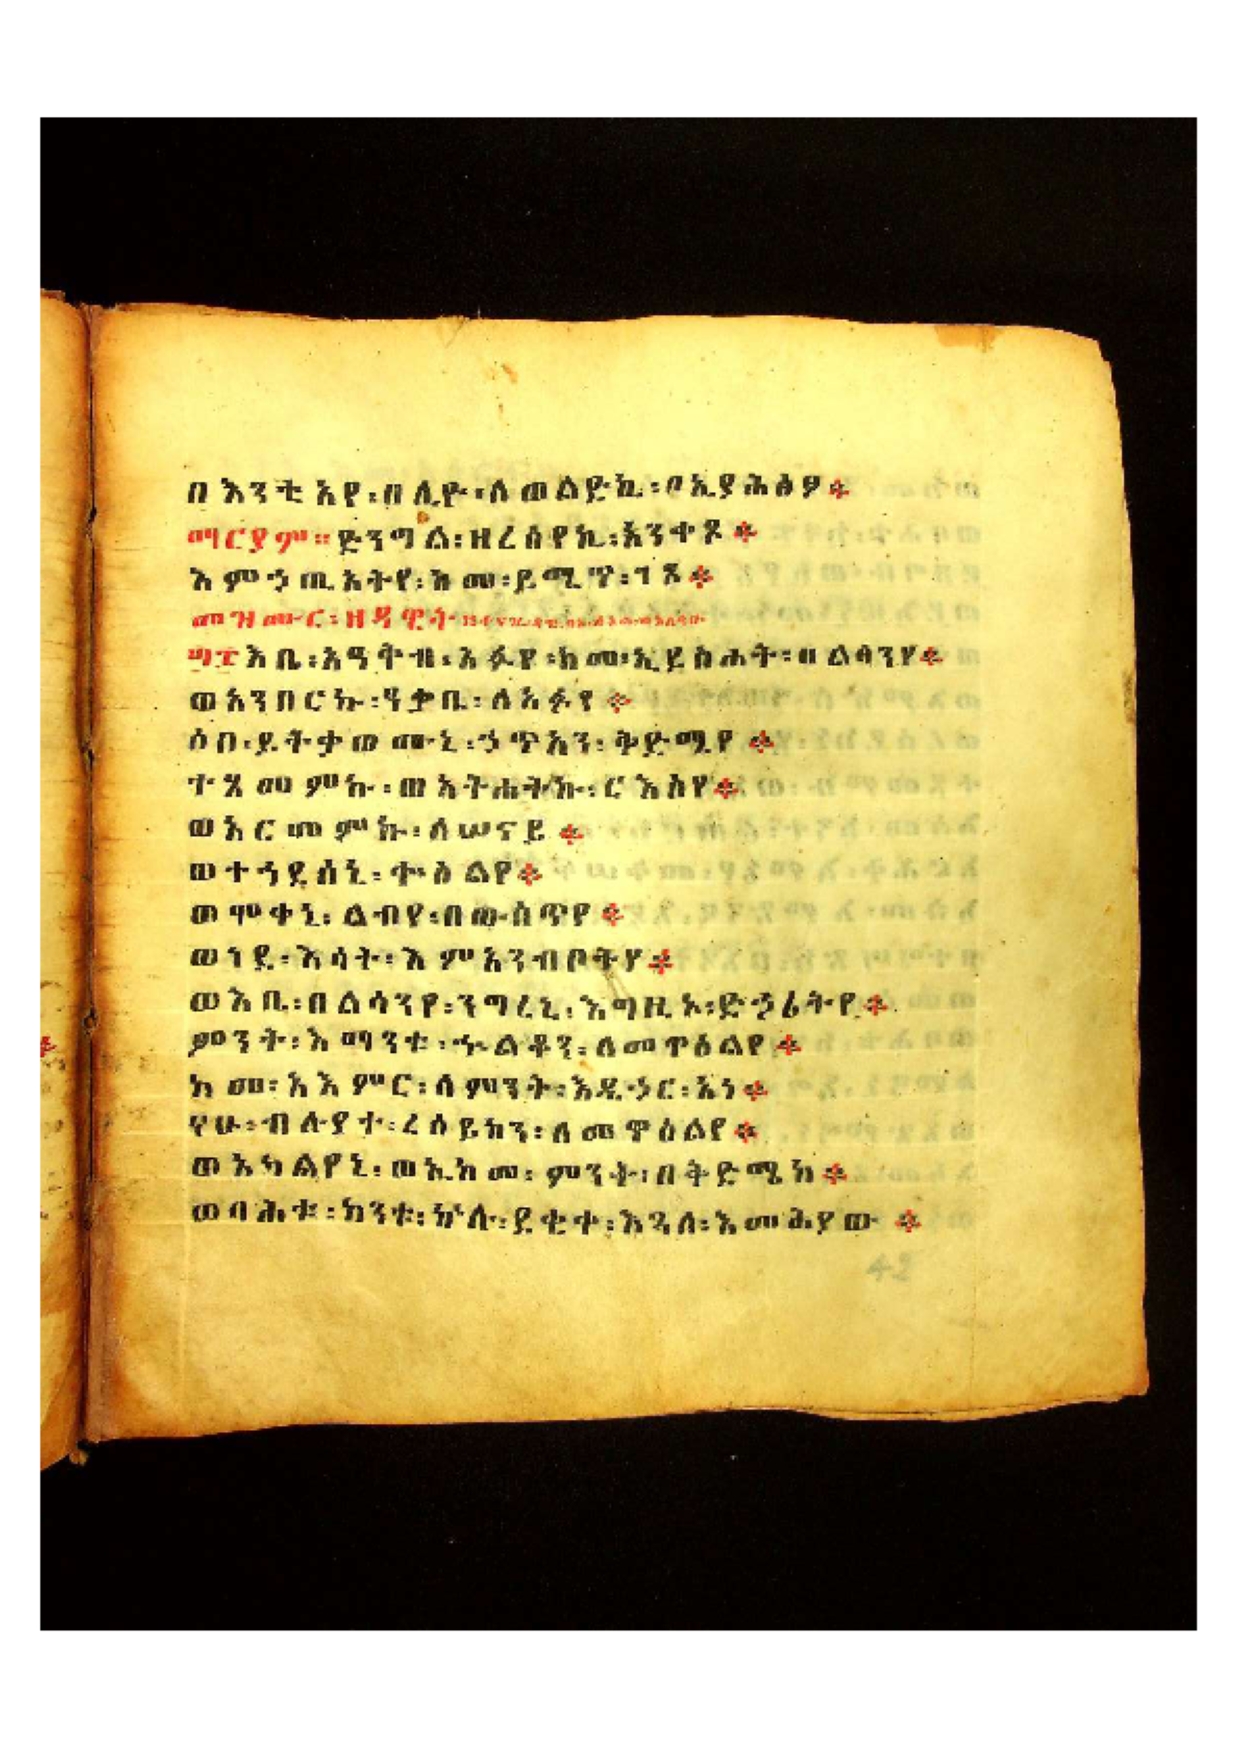 በእንቲአየ፡በሊዮ፡ለወልድኪ፡ዐኢያሕፅዎ
ማርያም።ድንግል፡ዘረሰየኪ፡አንቀጾ
እምኃጢአትየ፡ከመ፡ይሚጥ፡ገጾ
መዝሙር፡ዘዳዊት
፴፰እቤ፡አዓትብ፡አፉየ፡ከመ፡ኢይስሐት፡በልሳንየ
ወአንበርኩ፡ዓቃቤ፡ለአፉየ
ሶበ፡ይትቃወሙኒ፡ኃጥአን፡ቅድሜየ
ተጸመምኩ፡ወአትሐትኩ፡ርእስየ
ወአርመምኩ፡ለሠናይ
ወተኀደሰኒ፡ቍስልየ
ወሞቀኒ፡ልብየ፡በውስጥየ
ወነደ፡እሳት፡እምአንብቦትየ
ወእቤ፡በልሳንየ፡ንግረኒ፡እግዚኦ፡ድኃሪትየ
ምንት፡እማንቱ፡ኍልቆን፡ለመዋዕልየ
ከመ፡አእምር፡ለምንት፡እዴኃር፡አነ
ናሁ፡ብሉያተ፡ረሰይከን፡ለመዋዕልየ
ወአካልየኒ፡ወኢከመ፡ምንት፡በቅድሜከ
ወባሕቱ፡ከንቱ፡ኵሉ፡ደቂቀ፡እጓለ፡እመሕያው
42